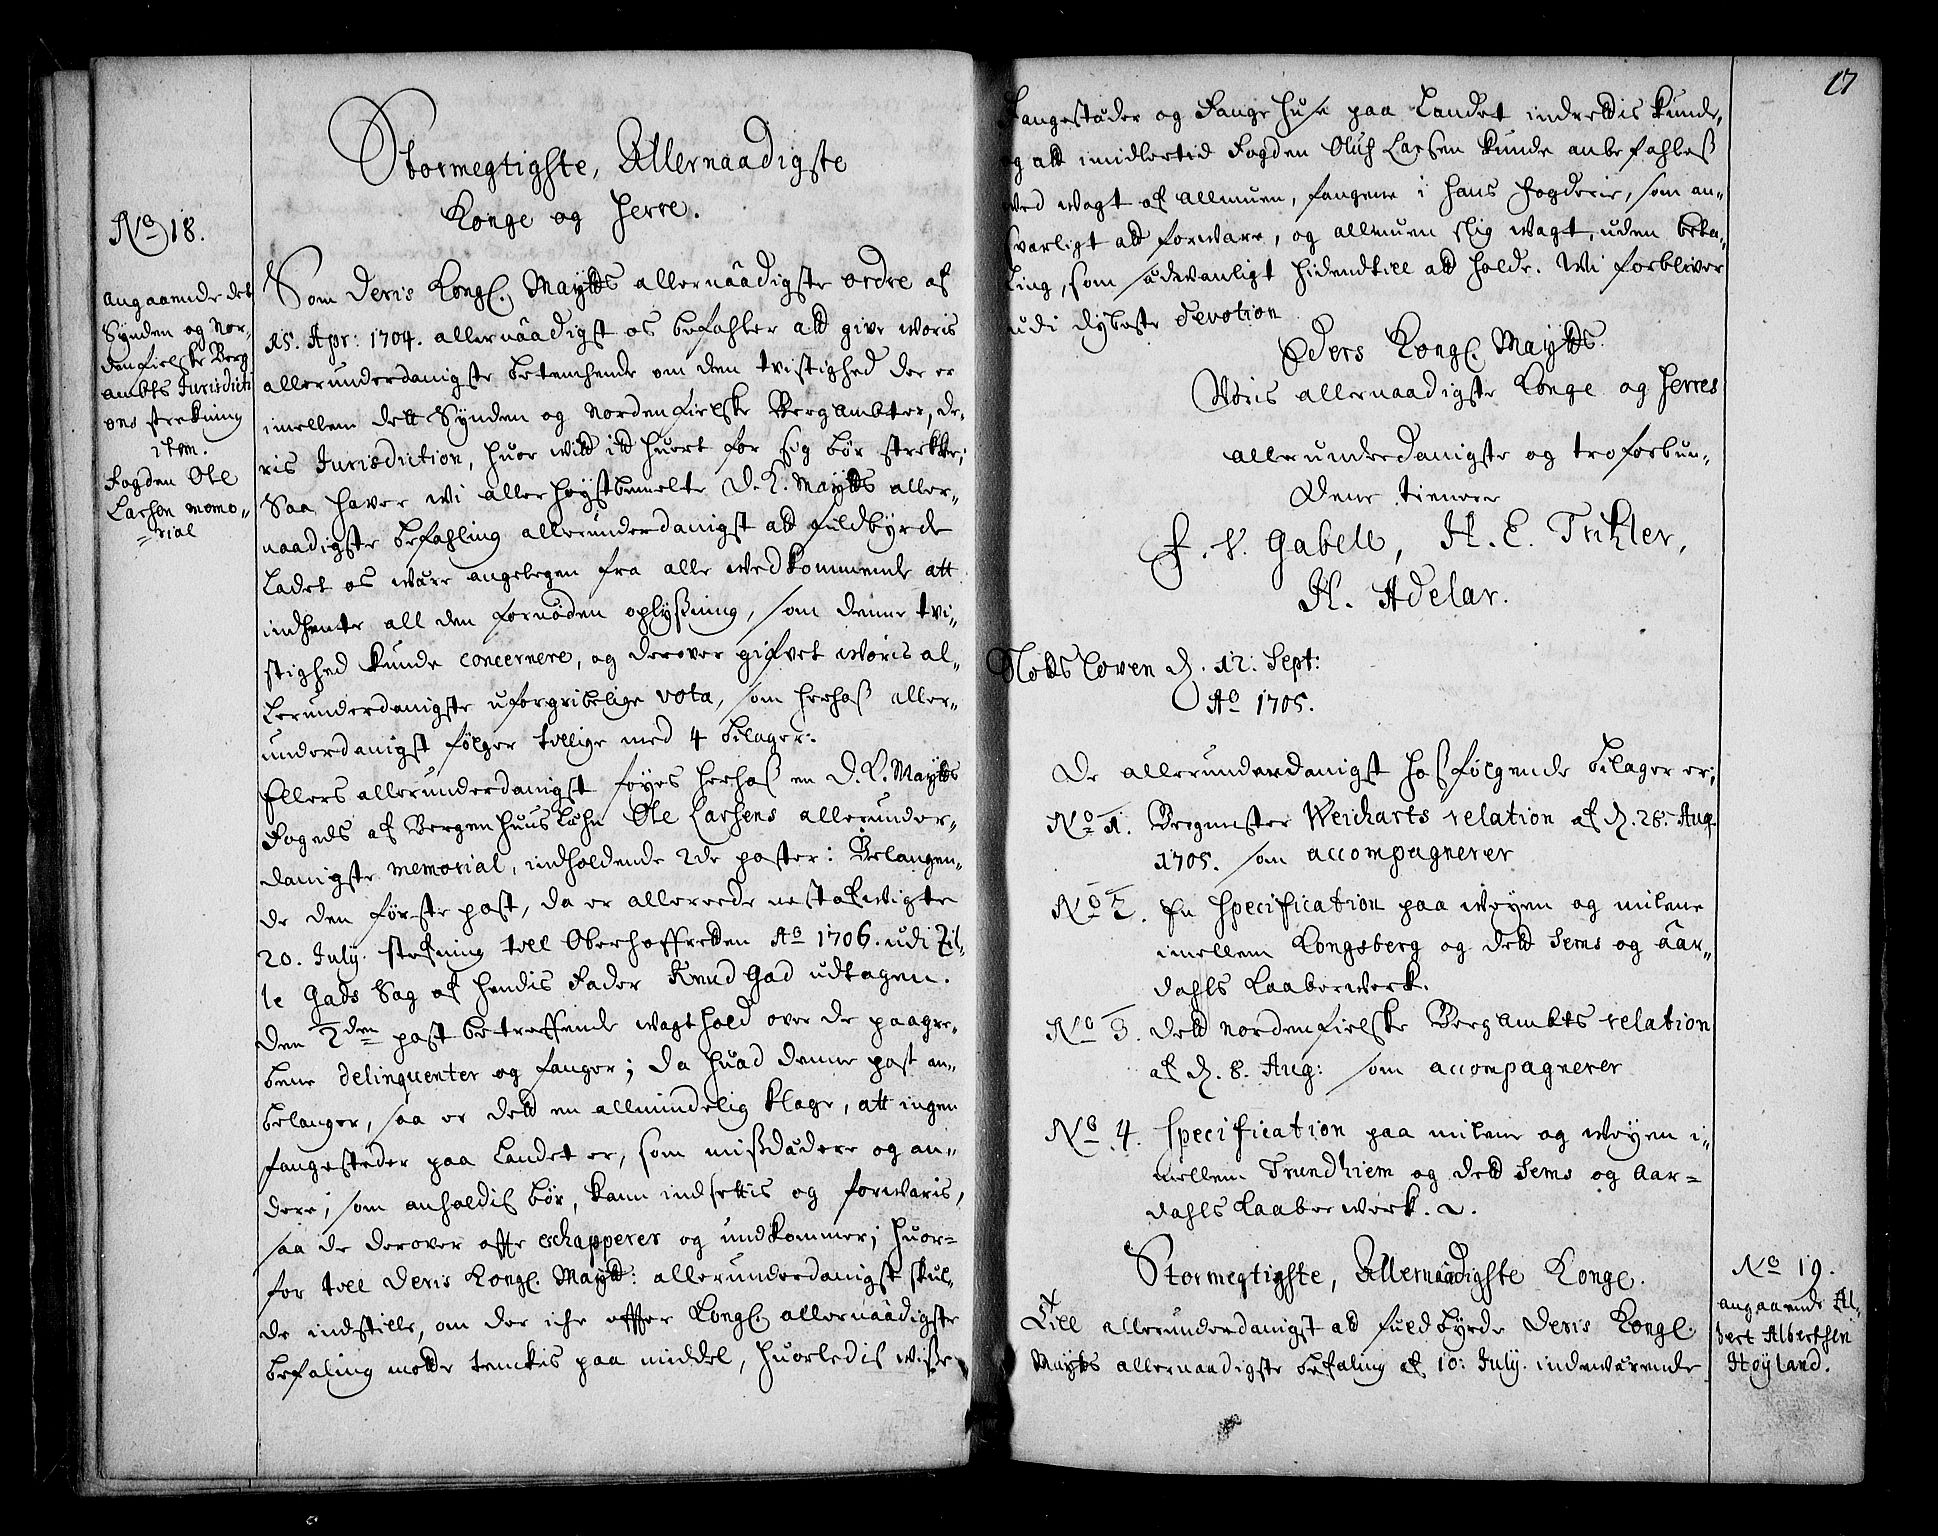 No 18.
angaaende det
Synden og Nor-
denfielske Berg
ambts Jurisdicti
ons strekning
item.
Fogden Ole
Larsen memo-
rial
Stormegtigste, Allernaadigste
Konge og Herre.
Som Deris Kongl. Maytts allernaadigste ordre af
15. Apr: 1704. allernaadigst os befahler att give woris
allerunderdanigste betenchende om den tvistighed der er
imellem dett Synden og Nordenfielske Bergambter, de-
ris Jurisdiction, huor vidt idt huert for sig bør strekke;
Saa hafver wi allerhøystbemelte D. K. Maytts aller-
naadigste befahling allerunderdanigst att fuldbyrde
Ladet os være angelegen fra alle vedkommende att
indhente all den fornøden oplyßning, som denne tvi-
stighed kunde concernere, og derover gifvet woris al-
lerunderdanigste uforgribelige vota, som herhoß aller-
underdanigst følger tillige med 4 bilager.
Ellers allerunderdanigst føyes herhoß en D. K. Maytts
Fogeds af Bergenhuus Lehn Ole Larsens allerunder-
danigste memorial, indholdende 2de poster: Belangen-
de den første post, da er allerede nestafvigte
20. July. stefning till Oberhoffretten Ao 1706. udi Zil-
le Gads Sag af hendis Fader Knud Gad udtagen.
Den 2den post betreffende wagthold over de paagre-
bene delinquenter og fanger; da huad denne post an-
belanger, saa er dett en allmindelig klage, att ingen
fangesteder paa Landet er, som mißdædere og an-
dere, som anholdis bør, kann indsettis og forwaris,
saa de derover offte echapperer og undkommer; huor-
for till Deris Kongl. Maytt: allerunderdanigst skul-
de indstille, om der iche effter Kongl. allernaadigste
befaling motte tenckis paa middel, huorledis wiße
17
Fangestæder og Fangehuse paa Landet indrettis kunde,
og att imidlertid Fogden Oluf Larsen kunde anbefahleß
ved wagt af allmuen, fangene i hans Fogderie, som an-
svarligt att forware, og allmuen slig wagt, uden beta-
ling, som sædvanligt hidendtill att holde. Wi forbliver
udi dybeste devotion
Eders Kongl. Maytts.
Woris allernaadigste Konge og Herres
allerunderdanigste og troforbun-
dene tienere
F. V. Gabell, H. E. Tritzler,
H. Adelar.
Slotsloven d. 12. Sept:
Ao 1705.
De allerunderdanigst hosfølgende bilager er;
No 1. Bergmester Weicharts relation af d. 28. Aug.
1705. som accompagnerer
No 2. En Specification paa weyen og milene
imellem Kongsberg og dett Sems og Aar-
dahls Kaaberwerk.
No 3. Dett nordenfielske Bergambts relation
af d. 8. Aug: som accompagnerer
No 4. Specification paa milene og weyen i-
mellem Trundhiem og dett Sems og Aar-
dahls Kaaberwerk.
Stormegtigste, Allernaadigste Konge.
Till allerunderdanigst att fuldbyrde Deris Kongl.
Maytts allernaadigste befaling af 10: July. indeværende
No 19.
angaaende Al-
bert Albertsen
Høyland.